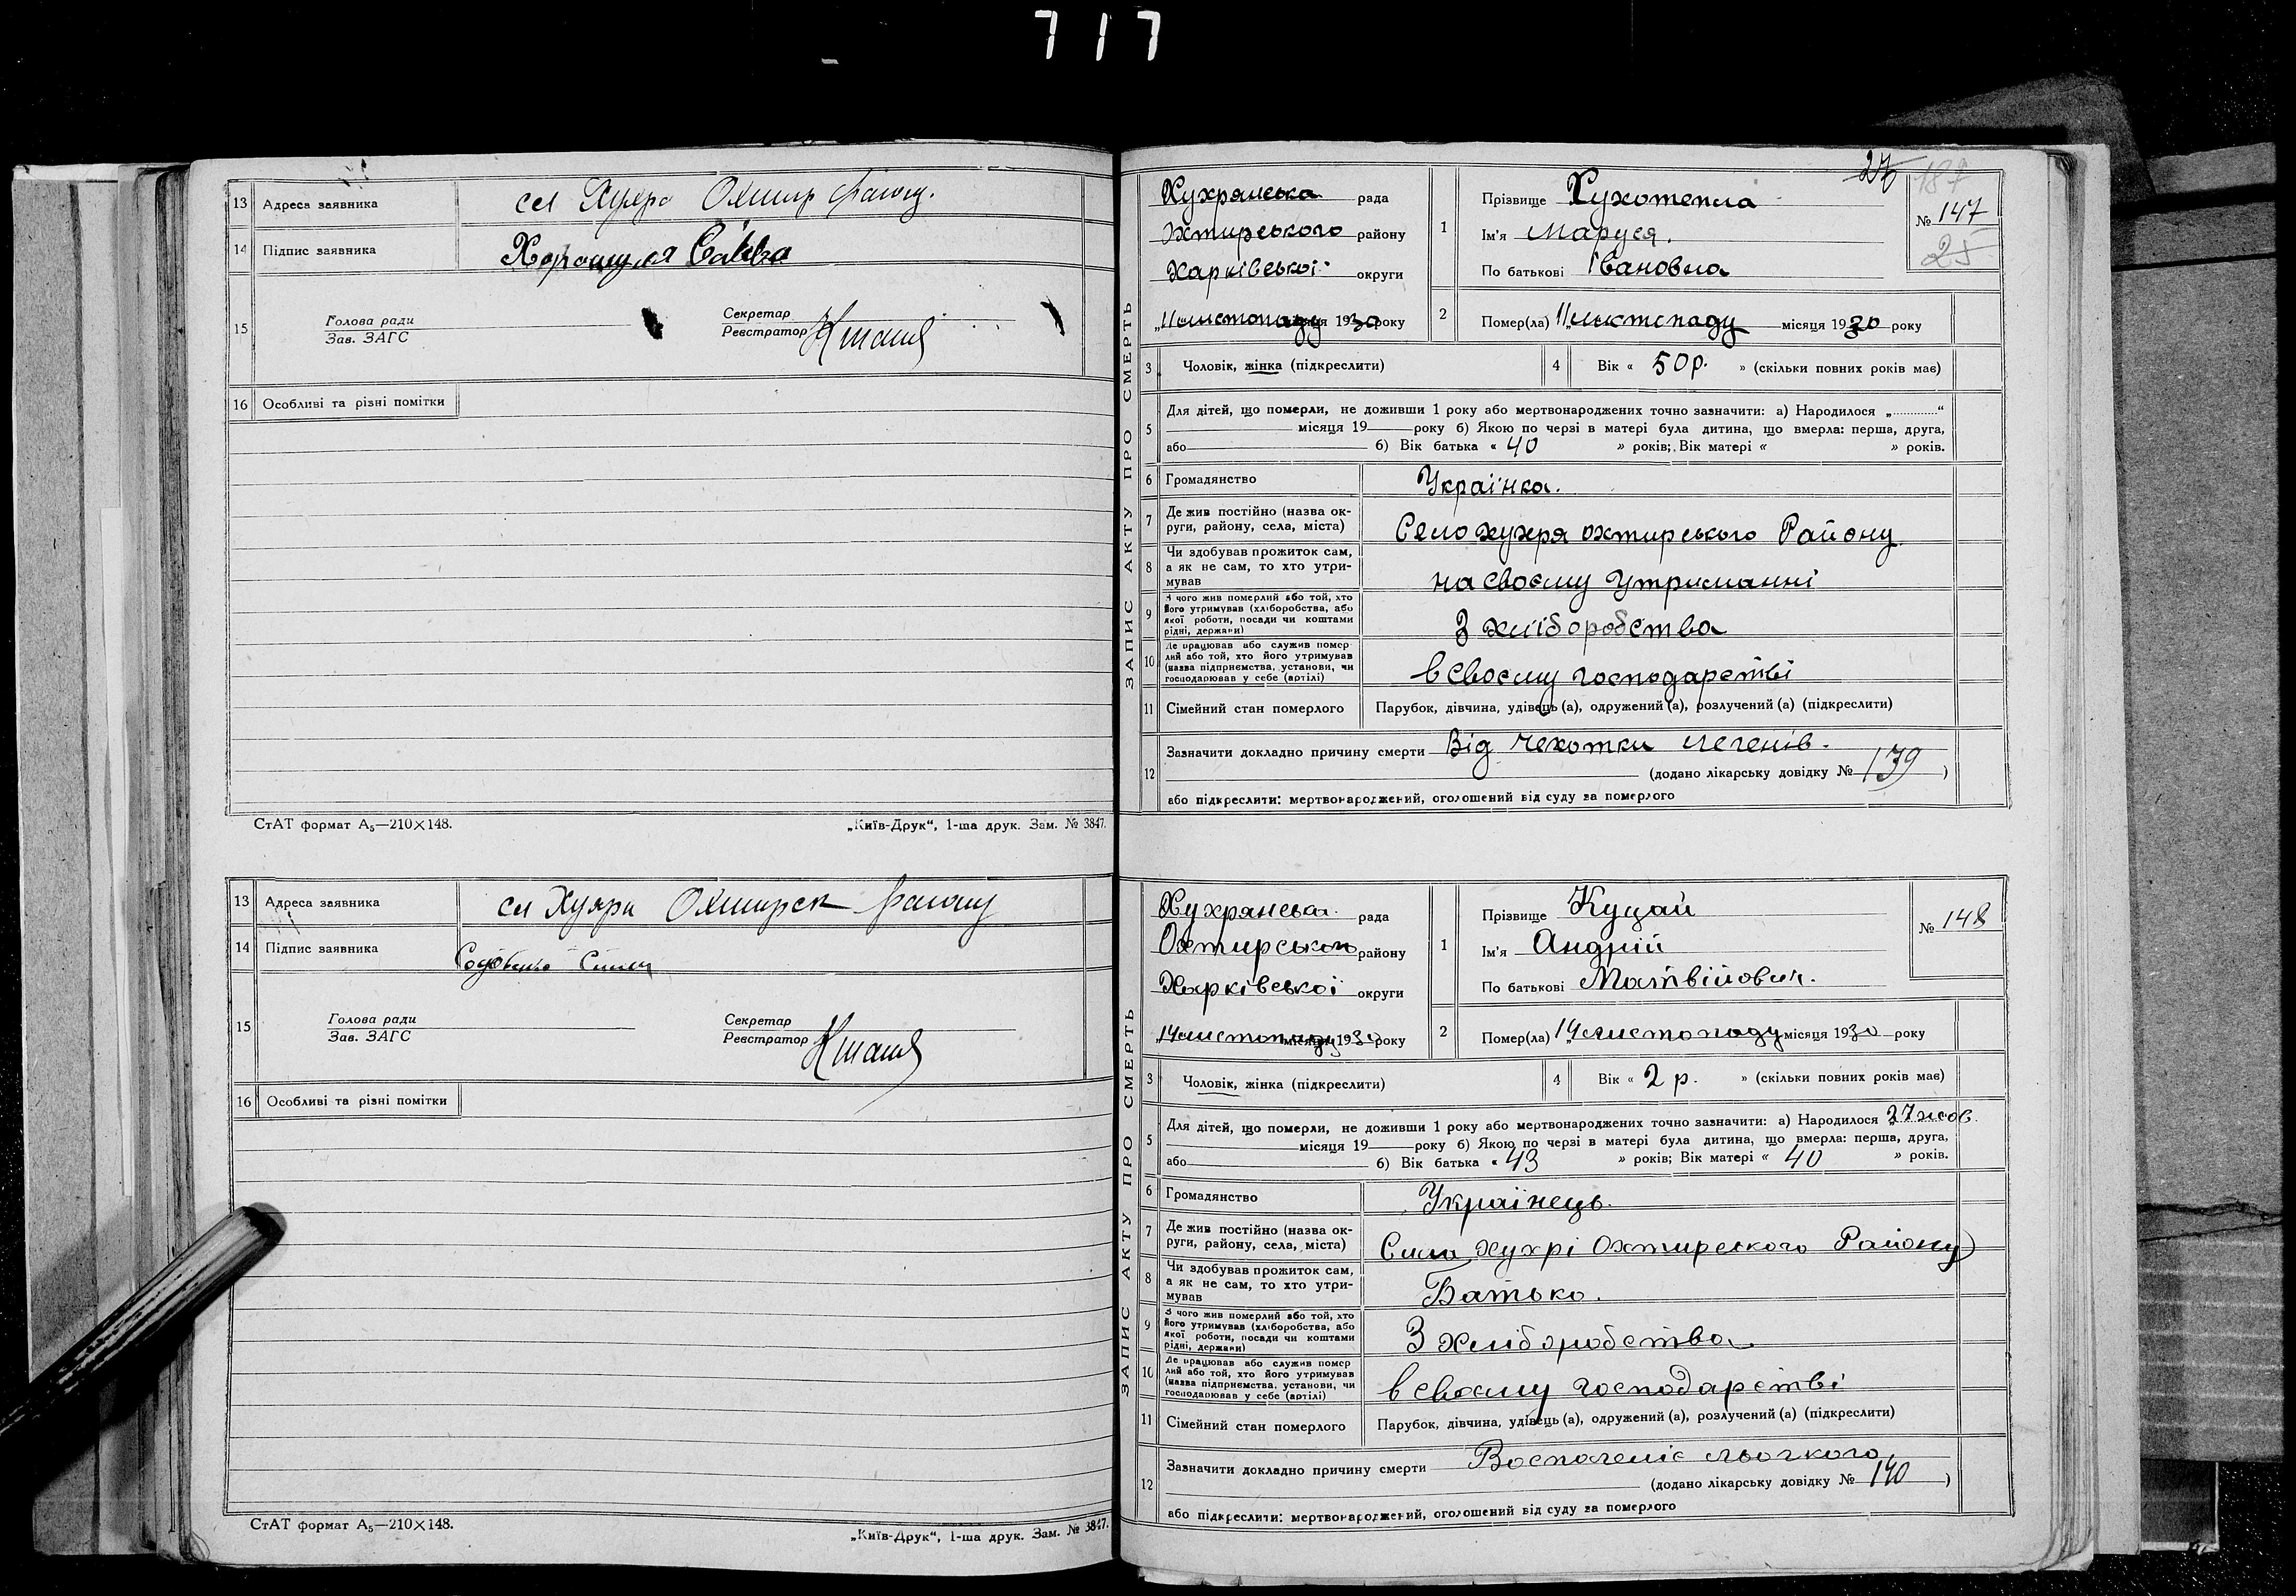 717
13 Адреса заявника сел Хухра Охтир району.
14 Підпис заявника
15 Голова ради
Зав. ЗАГС
Секретар
Реєстратор
16 Особливі та різні помітки
СтАТ формат А₅—210×148. „Київ-Друк“, 1-ша друк. Зам. № 3847.
13 Адреса заявника сел Хухра Охтирск району
14 Підпис заявника
15 Голова ради
Зав. ЗАГС
Секретар
Реєстратор
16 Особливі та різні помітки
СтАТ формат А₅—210×148. „Київ-Друк“, 1-ша друк. Зам. № 3847.
ЗАПИС АКТУ ПРО СМЕРТЬ
Хухрянська рада
Охтирського району
Харківської округи
„11 листопаду місяця 1930 року
1 Прізвище Хухотепла
Ім'я Маруся.
По батькові Івановна
187
№ 147
25
2 Помер(ла) 11 листопаду місяця 1930 року
3 Чоловік, жінка (підкреслити)
4 Вік « 50 р. » (скільки повних років має)
5 Для дітей, що померли, не доживши 1 року або мертвонароджених точно зазначити: а) Народилося „............“
місяця 19 року б) Якою по черзі в матері була дитина, що вмерла: перша, друга,
або б) Вік батька « 40 » років; Вік матері « » років.
6 Громадянство Українка.
7 Де жив постійно (назва округи, району, села, міста) Село хухря охтирського Району
8 Чи здобував прожиток сам, а як не сам, то хто утримував на своєму утриманні
9 З чого жив померлий або той, хто його утримував (хліборобства, або якої роботи, посади чи коштами рідні, держави) З хліборобства
10 Де працював або служив померлий або той, хто його утримував (назва підприємства, установи, чи господарював у себе (артілі) в своєму господарстві
11 Сімейний стан померлого Парубок, дівчина, удівець (а), одружений (а), розлучений (а) (підкреслити)
12 Зазначити докладно причину смерти Від чехотки легенів.
(додано лікарську довідку № 139)
або підкреслити: мертвонароджений, оголошений від суду за померлого
ЗАПИС АКТУ ПРО СМЕРТЬ
Хухрянська рада
Охтирського району
Харківської округи
„14 листопаду місяця 1930 року
1 Прізвище Куцай
Ім'я Андрій
По батькові Матвійович.
№ 148
2 Помер(ла) 14 листопаду місяця 1930 року
3 Чоловік, жінка (підкреслити)
4 Вік « 2 р. » (скільки повних років має)
5 Для дітей, що померли, не доживши 1 року або мертвонароджених точно зазначити: а) Народилося 27 жов.
місяця 19 року б) Якою по черзі в матері була дитина, що вмерла: перша, друга,
або б) Вік батька « 43 » років; Вік матері « 40 » років.
6 Громадянство Українець.
7 Де жив постійно (назва округи, району, села, міста) Хухрі Охтирского Району
8 Чи здобував прожиток сам, а як не сам, то хто утримував Батько.
9 З чого жив померлий або той, хто його утримував (хліборобства, або якої роботи, посади чи коштами рідні, держави) З хліборобства
10 Де працював або служив померлий або той, хто його утримував (назва підприємства, установи, чи господарював у себе (артілі) в своєму господарстві
11 Сімейний стан померлого Парубок, дівчина, удівець (а), одружений (а), розлучений (а) (підкреслити)
12 Зазначити докладно причину смерти Воспаленіє льогкого
(додано лікарську довідку № 140)
або підкреслити: мертвонароджений, оголошений від суду за померлого